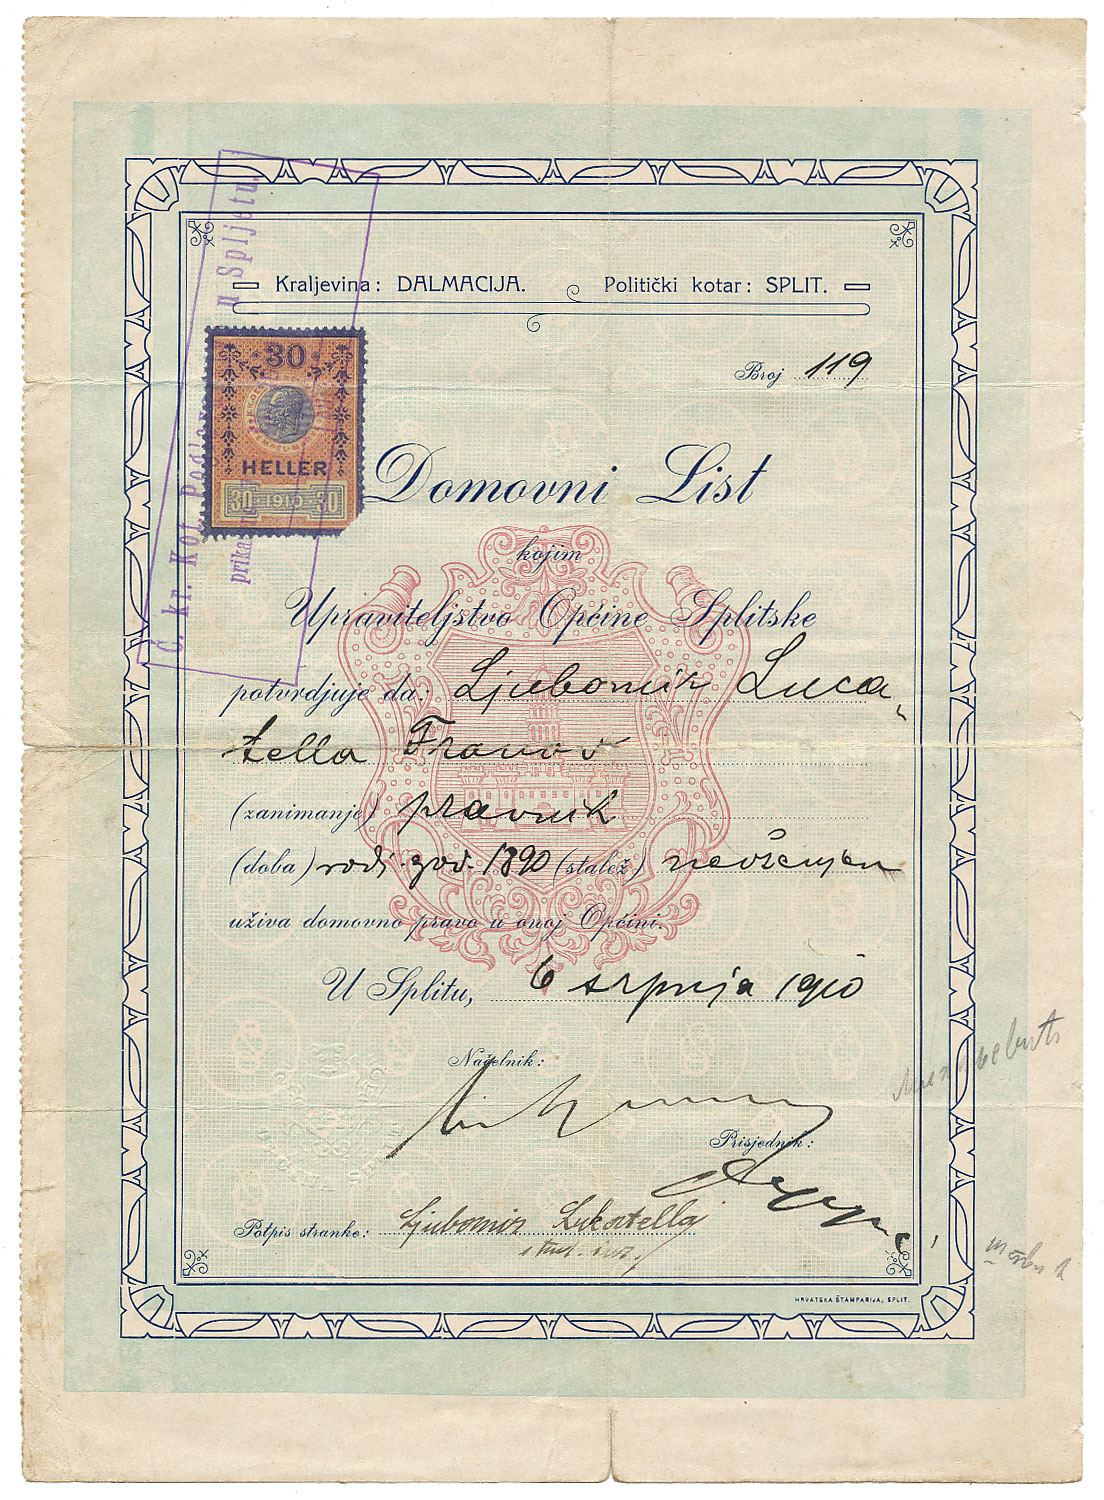 Kraljevina: DALMACIJA. Politički kotar: SPLIT.
Broj 119
30
HELLER
30 1910 30
C. kr. Kot. u Spljetu
Domovni List
kojim
Upraviteljstvo Općine Splitske
potvrdjuje da: Ljubomir Luca-
tella Franov
(zanimanje) pravnik
(doba) rodj. god. 1890 (stalež) neoženjen
uživa domovno pravo u ovoj Općini.
U Splitu, 6 srpnja 1910
Načelnik:
Prisjednik:
Potpis stranke: Ljubomir Lukatella
stud. iur.
HRVATSKA ŠTAMPARIJA, SPLIT.